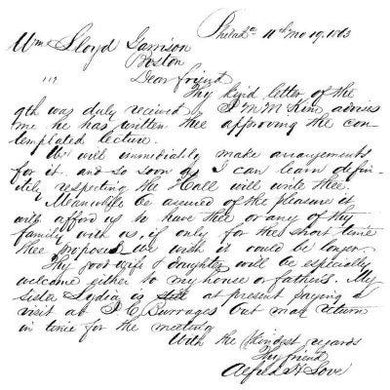 Philada 11th mo 19, 1863
Wm Lloyd Garrison
Boston
Dear friend
Thy kind letter of the
9th was duly received & J M McKim advises
me he has written thee approving the con-
templated lecture.
We will immediately make arrangements
for it. and so soon as I can learn defin-
itely respecting the Hall will write thee.
Meanwhile be assured of the pleasure it
will afford us to have thee or any of thy
family with us, if only for the short time
thee proposes. We wish it could be longer.
Thy good wife & daughter will be especially
welcome either to my house or father's. My
sister Lydia is at present paying a
visit at C Burrages but may return
in time for the meeting
With the kindest regards
Thy friend
Alfred H Love